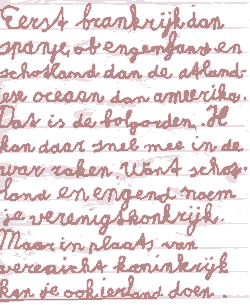 Eerst brankrijk dan
spanje, of engenland en
schotland dan de atland-
ese oceaan dan ameerika.
Dat is de volgorden. Ik
kan daar snel mee in de
war raken. Want schot-
land en engend noem
je verenigtkonkrijk.
Maar in plaats van
vereniicht koninkrijk
kan je ook ierland doen